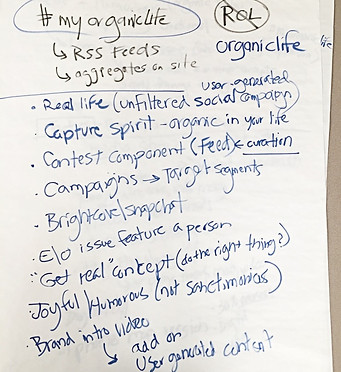 #myorganiclife
ROL
↳ RSS Feeds
organiclife
life
↳ aggregates on site
user-generated
• Real life (unfiltered social campaign)
• Capture spirit - organic in your life
• Contest component (feed) ← curation
• Campaigns → Target segments
• Brightcove/snapchat
• E/O issue feature a person
• "Get real" concept (do the right thing?)
• Joyful/Humorous (not sanctimonious)
• Brand intro video
↳ add on
User generated content